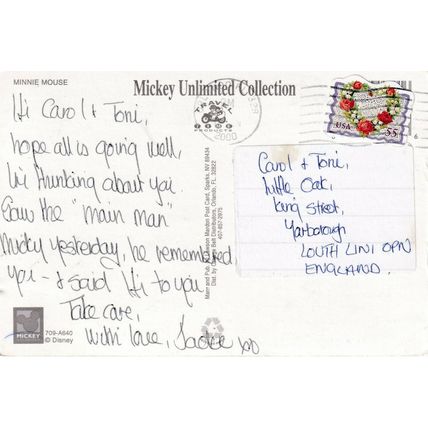 MINNIE MOUSE
Mickey Unlimited Collection
TRAVEL
PRODUCTS
2000
USA
55
Hi Carol & Toni,
hope all is going well,
We thinking about you
Saw the "main man"
Micky yesterday, he remembered
you - & said Hi to you
Take care,
with love, Jackie xo
Carol & Toni,
Little Oak,
King Street,
Yarborough
LOUTH LINCOLN
ENGLAND.
Dist. by Orlando, FL. 32822
407-857-2975
Post Card, Sparks, NV 89434
MICKEY
709-A640
© Disney